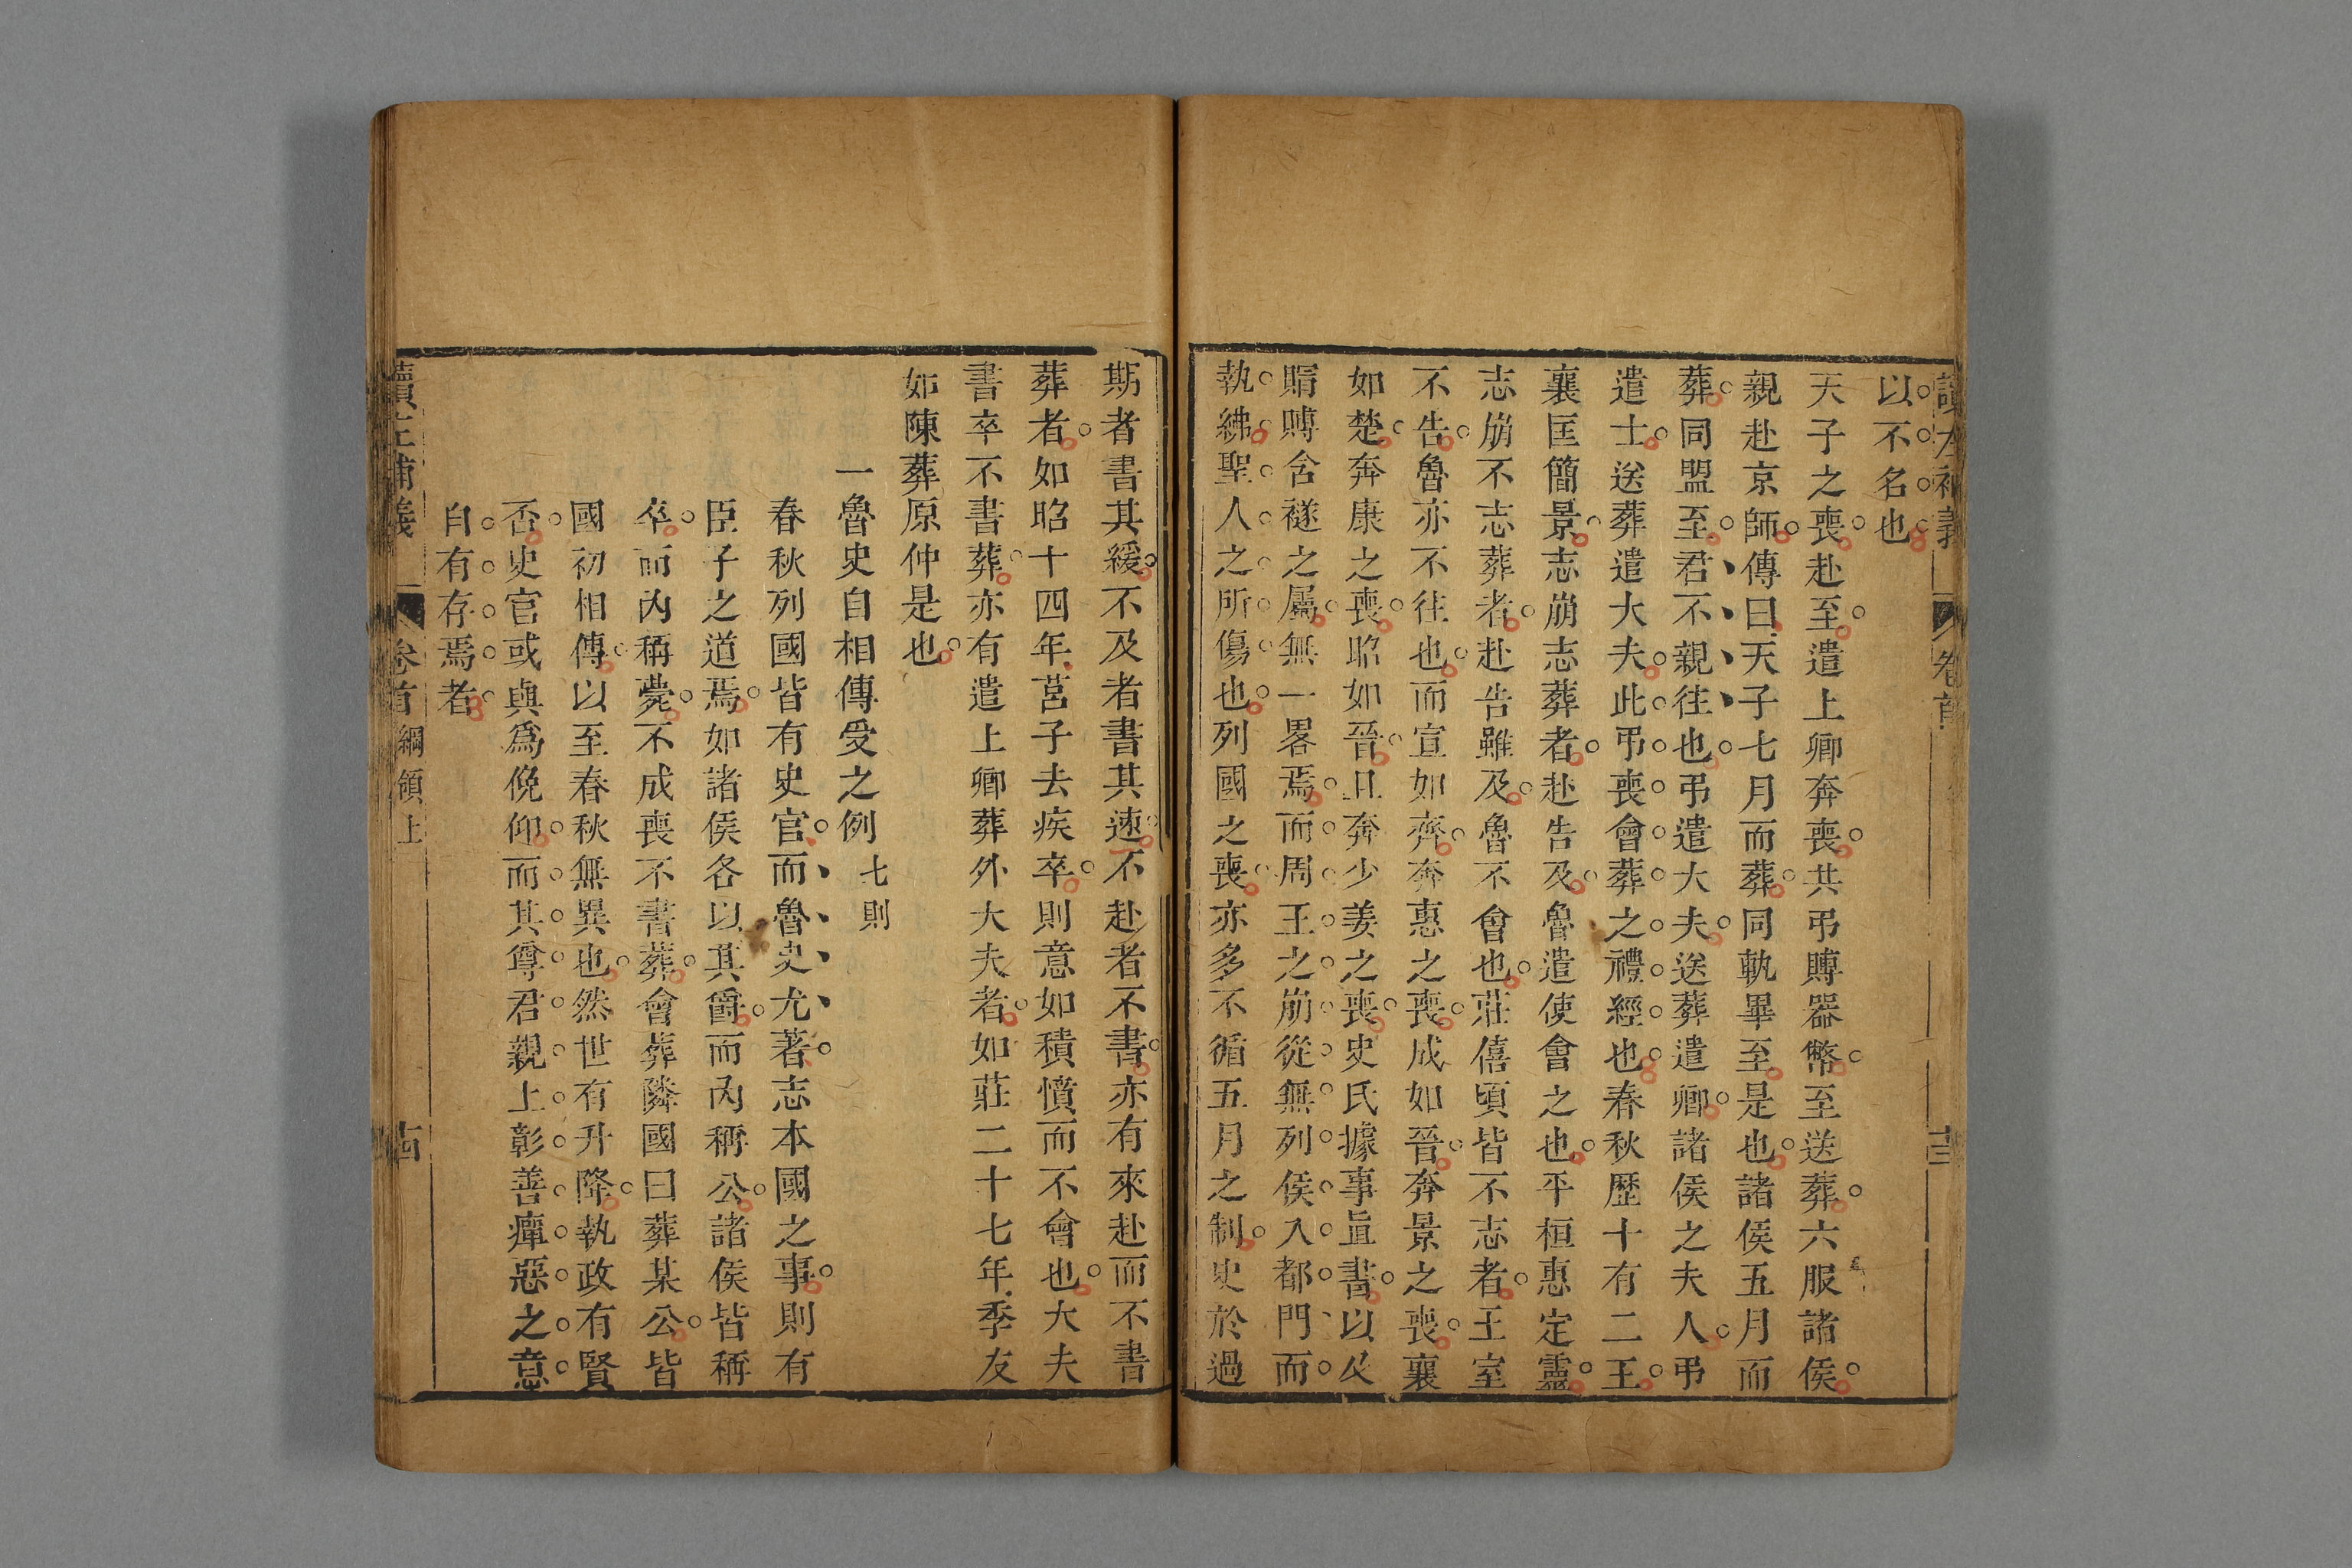 讀左補義 卷首 十三
以不名也
天子之喪赴至遣上卿奔喪共弔賻器幣至送葬六服諸侯
親赴京師傳曰天子七月而葬同軌畢至是也諸侯五月而
葬同盟至君不親往也弔遣大夫送葬遣卿諸侯之夫人弔
遣士送葬遣大夫此弔喪會葬之禮經也春秋歷十有二王
襄匡簡景志崩志葬者赴告及魯遣使會之也平桓惠定靈
志崩不志葬者赴告雖及魯不會也莊僖頃皆不志者王室
不告魯亦不往也而宣如齊奔惠之喪成如晉奔景之喪襄
如楚奔康之喪昭如晉且奔少姜之喪史氏據事直書以及
賵賻含襚之屬無一畧焉而周王之崩從無列侯入都門而
執紼聖人之所傷也列國之喪亦多不循五月之制史於過
期者書其緩不及者書其速不赴者不書亦有來赴而不書
葬者如昭十四年莒子去疾卒則意如積憤而不會也大夫
書卒不書葬亦有遣上卿葬外大夫者如莊二十七年季友
如陳葬原仲是也
一魯史自相傳受之例 七則
春秋列國皆有史官而魯史尤著志本國之事則有
臣子之道焉如諸侯各以其爵而內稱公諸侯皆稱
卒而內稱薨不成喪不書葬會葬隣國曰葬某公皆
國初相傳以至春秋無異也然世有升降執政有賢
否史官或與爲俛仰而其尊君親上彰善癉惡之意
自有存焉者
讀左補義 卷首 綱領上 十四